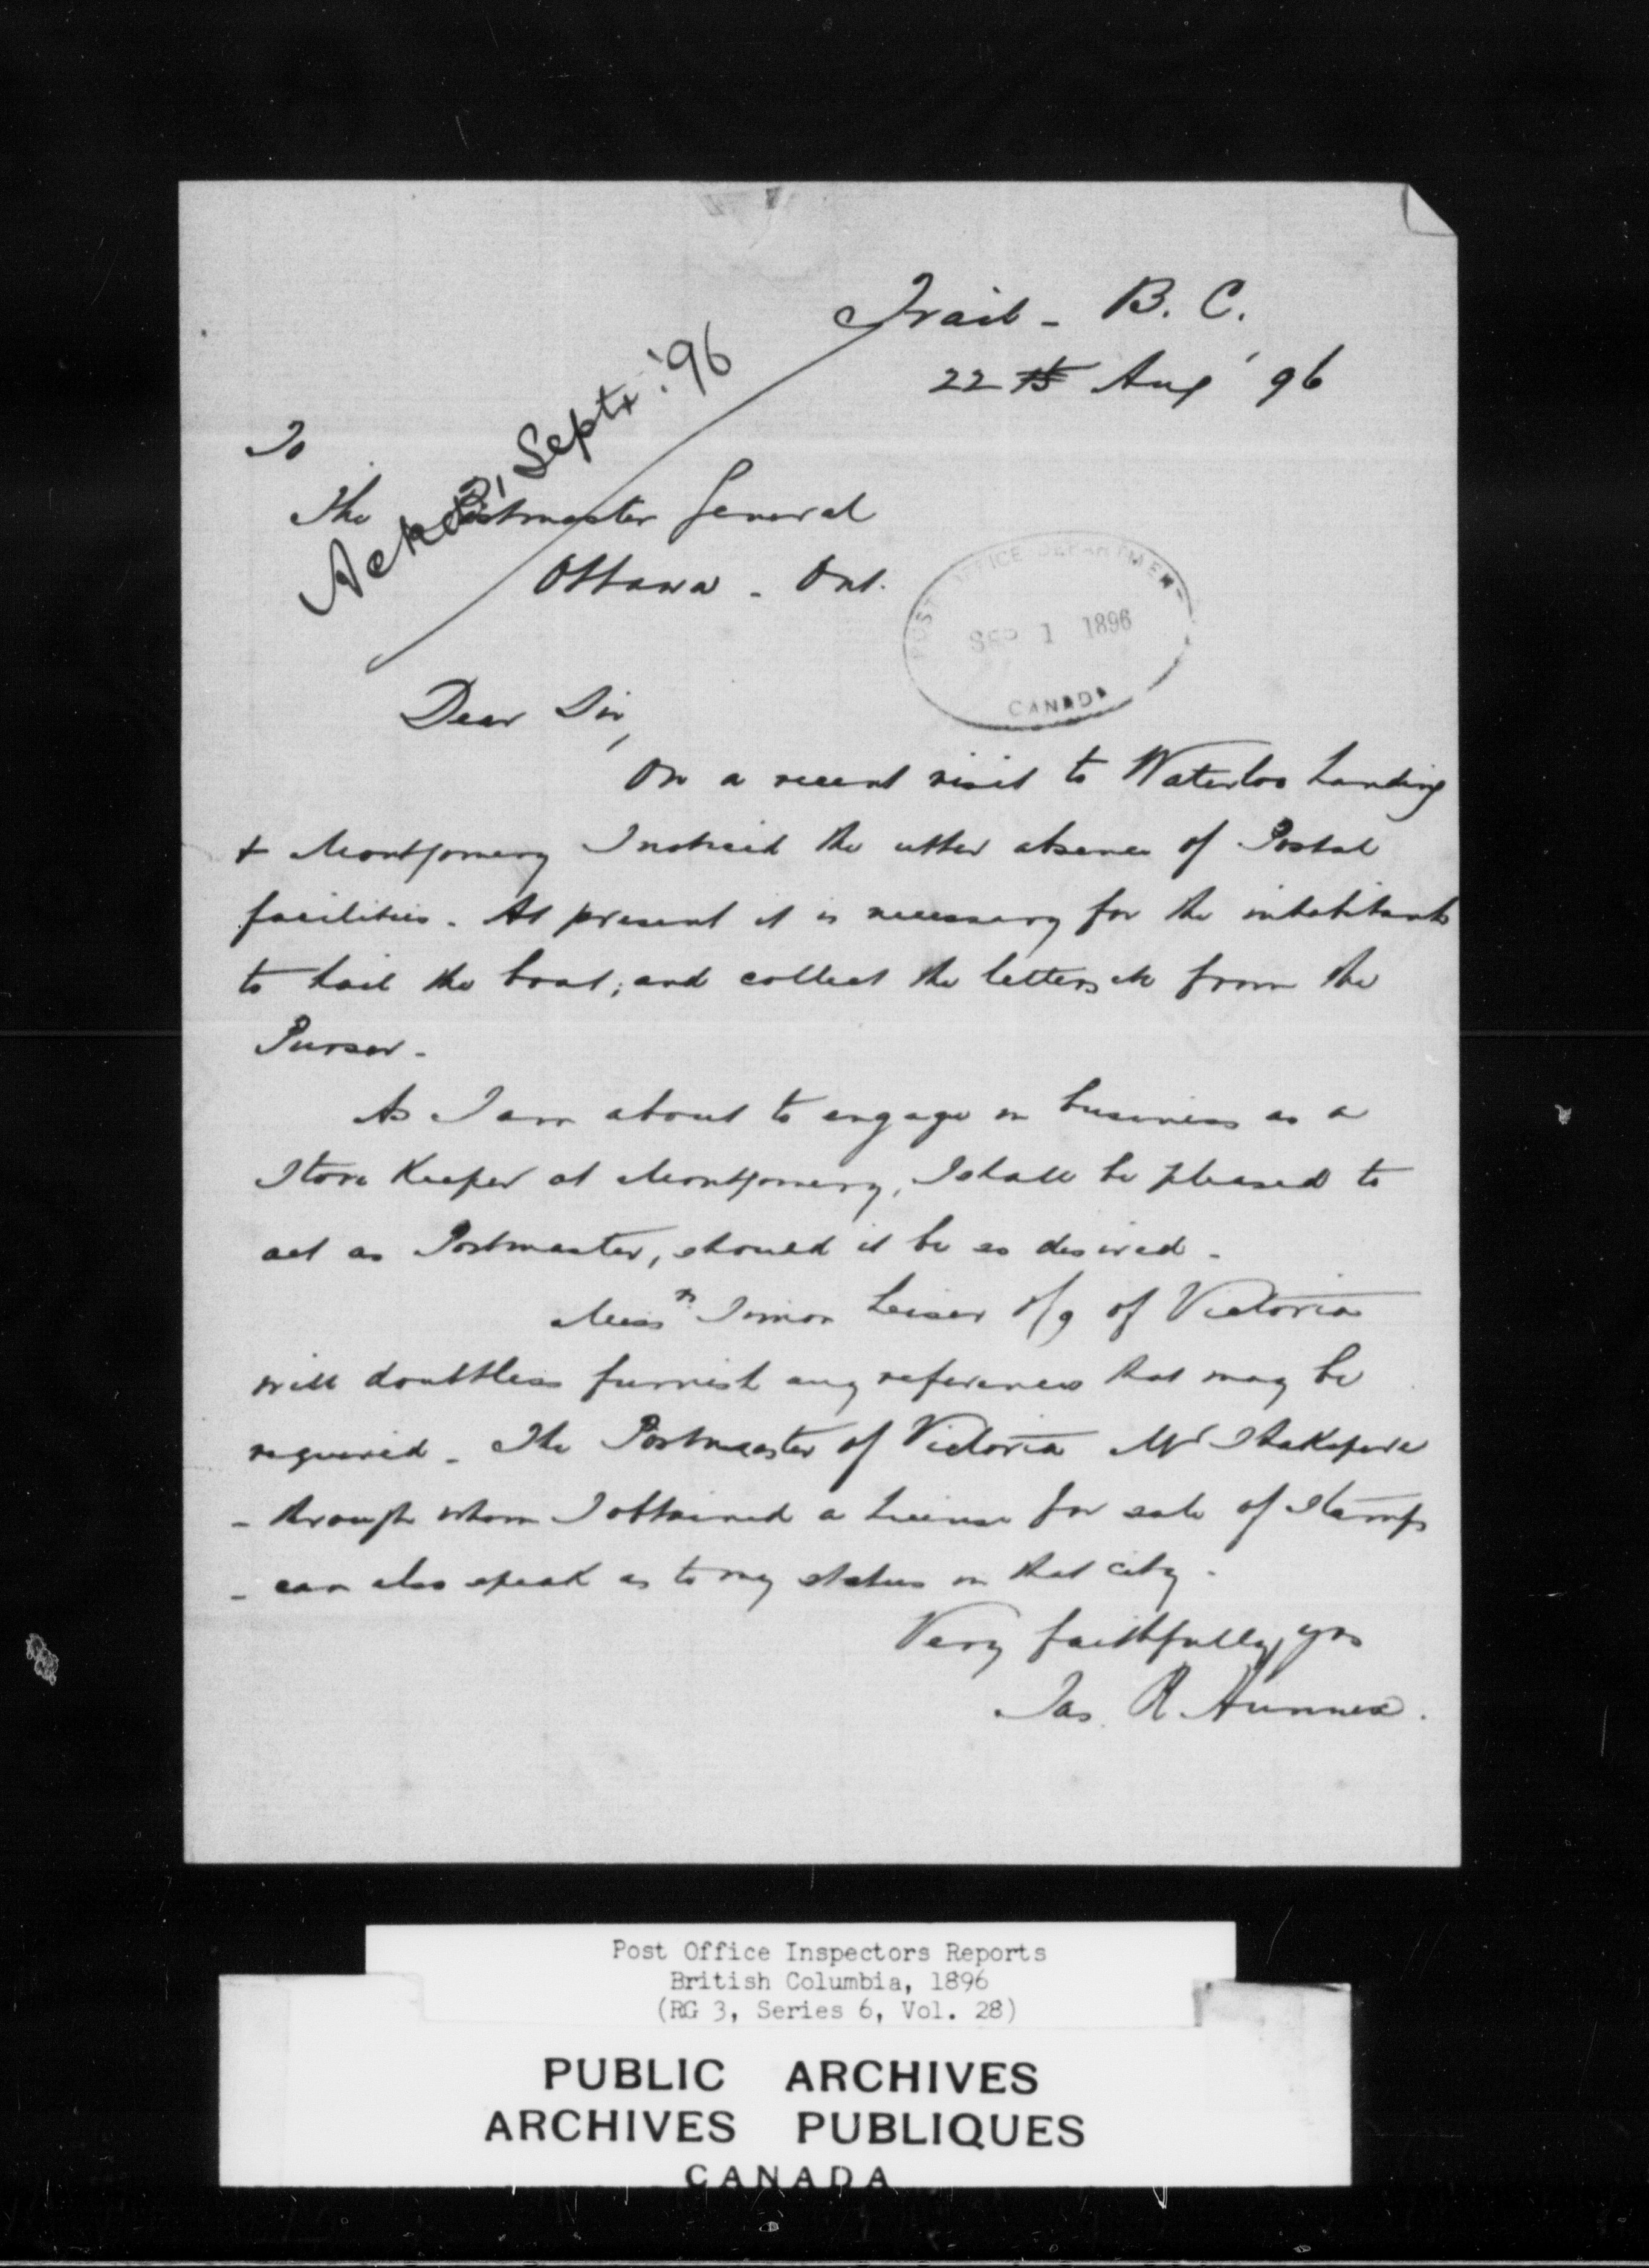 Trail - B. C.
22 th Aug '96
Ackd 2, Septr. '96
To
The Postmaster General
Ottawa - Ont.
POST OFFICE DEPARTMENT
SEP 1 1896
CANADA
Dear Sir,
On a recent visit to Waterloo Landing
+ Montgomery I noticed the utter absence of Postal
facilities. At present it is necessary for the inhabitants
to hail the boat; and collect the letters etc from the
Purser -
As I am about to engage in business as a
Store Keeper at Montgomery, I shall be pleased to
act as Postmaster, should it be so desired -
Messrs Simon Leiser of Victoria
will doubtless furnish any references that may be
required - The Postmaster of Victoria Mr Shakespere
- through whom I obtained a License for sale of Stamps
- can also speak as to my status in that city -
Very faithfully yrs
Jas. R. Hunnex.
Post Office Inspectors Reports
British Columbia, 1896
(RG 3, Series 6, Vol. 28)
PUBLIC ARCHIVES
ARCHIVES PUBLIQUES
CANADA